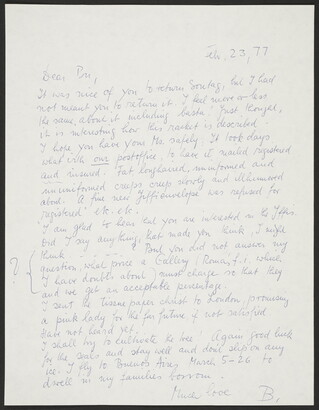 Feb. 23, 77
Dear Pri,
It was nice of you to return Sontag, but I had
not meant you to return it. I feel more or less
the same about it including basta. Just thought,
it is interesting how this racket is described.
I hope you have your Ms. safely. It took days
what with our postoffice, to have it mailed registered
and insured. Fat longhaired, uninformed and
ununiformed creeps creep slowly and illhumored
about. A fine new Jiffienvelope was refused for
"registered" etc. etc.
I am glad to hear that you are interested in the
Did I say anything, that made you think, I might
thank But you did not answer my
question, what price a Gallery (Roman, f.i. which
I have doubts about) must charge so that they
and we get an acceptable percentage.
I sent the tissue paper christ to London, promising
a pink lady for the far future if not satisfied
Have not heard yet.
I shall try to cultivate the tree! Again good luck
for the seals and stay well and dont slip on any
ice! I fly to Buenos Aires March 5-26 to
dwell in my families bosom.
Much love
B.